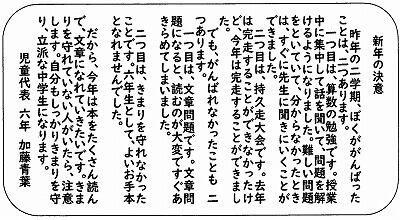 新年の決意
昨年の二学期、ぼくががんばった
ことは、二つあります。
一つ目は、算数の勉強です。授業
中に集中して話を聞いて問題を解
けるようになりました。難しい問題
をといていて分からなかったとき
は、すぐに先生に聞きにいくことが
できました。
二つ目は、持久走大会です。去年
は完走することができなかったけ
ど、今年は完走することができまし
た。
でも、がんばれなかったことも 二
つあります。
一つ目は、文章問題です。文章問
題になると、読むのが大変ですぐあ
きらめてしまいました。
二つ目は、きまりを守れなかった
ことです。六年生として、よいお手本
となれませんでした。
だから、今年は本をたくさん読ん
で、文章になれていきたいです。きま
りを守れていない人がいたら、注意
します。自分もしっかりきまりを守
り、立派な中学生になります。
児童代表 六年 加藤青葉